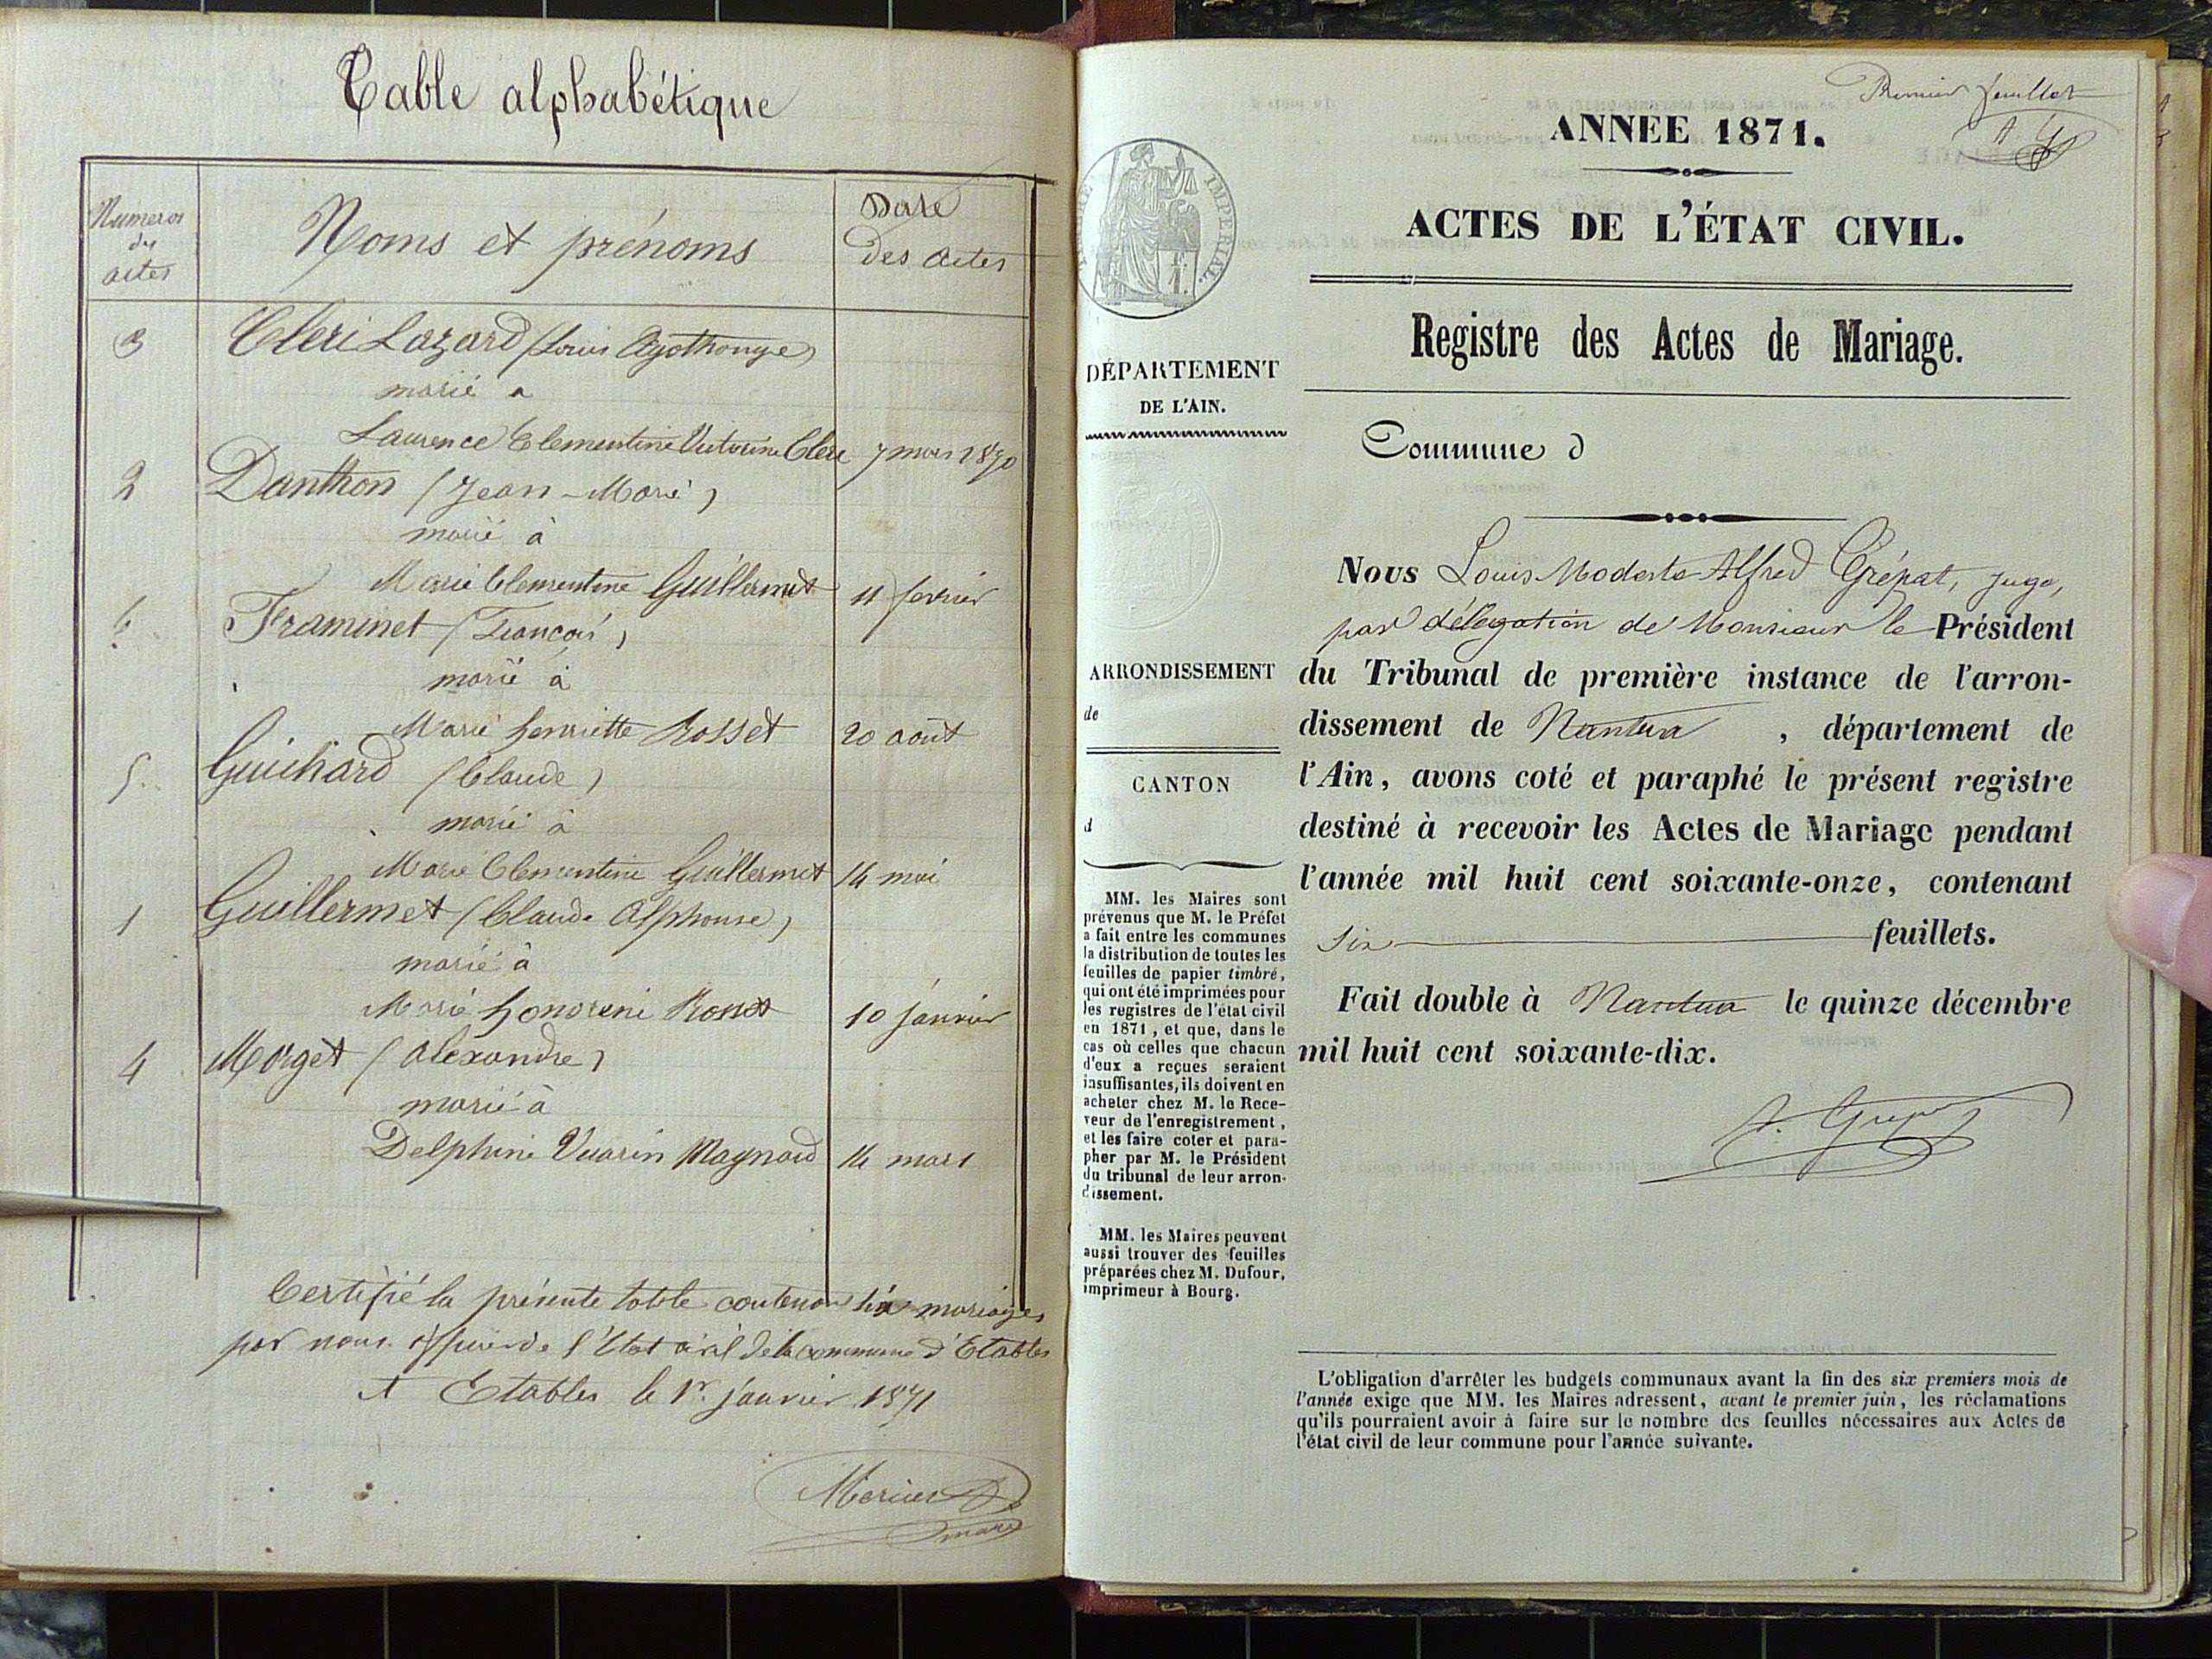 Table alphabétique
Numeros
des
actes
Noms et prénoms
Date
des actes
3
Clerc Lazard (Louis Agothonge)
marié a
Laurence Clementine Victorine Clerc
7 mars 1870
2
Danthon (Jean-Marie)
marié à
Marie Clementine Guillermet
11 fevrier
6
Framinet (Francois)
marié à
Marie henriette Rosset
20 août
5
Guichard (Claude)
marié à
Marie Clementine Guillermet
14 mai
1
Guillermet (Claude Alphonse)
marié à
Marie honorine Rosset
10 janvier
4
Morget (alexandre)
marié à
Delphine Vuarin Maynard
14 mars
Certifié la présente table contenant six mariages
par nous officier de l'Etat civil de la commune d'Etables
A Etables le 1r. janvier 1871
Mercier
maire
Premier feuillet
A. G
ANNEE 1871.
TIMBRE IMPERIAL.
ACTES DE L'ÉTAT CIVIL.
Registre des Actes de Mariage.
DÉPARTEMENT
DE L'AIN.
Commune d
Nous Louis Modeste Alfred Grépat, juge,
par délégation de Monsieur le Président
du Tribunal de première instance de l'arron-
dissement de Nantua, département de
l'Ain, avons coté et paraphé le présent registre
destiné à recevoir les Actes de Mariage pendant
l'année mil huit cent soixante-onze, contenant
six feuillets.
Fait double à Nantua le quinze décembre
mil huit cent soixante-dix.
ARRONDISSEMENT
de
CANTON
d
MM. les Maires sont
prévenus que M. le Préfet
a fait entre les communes
la distribution de toutes les
feuilles de papier timbré,
qui ont été imprimées pour
les registres de l'état civil
en 1871, et que, dans le
cas où celles que chacun
d'eux a reçues seraient
insuffisantes, ils doivent en
acheter chez M. le Rece-
veur de l'enregistrement,
et les faire coter et para-
pher par M. le Président
du tribunal de leur arron-
dissement.
MM. les Maires peuvent
aussi trouver des feuilles
préparées chez M. Dufour,
imprimeur à Bourg.
L'obligation d'arrêter les budgets communaux avant la fin des six premiers mois de
l'année exige que MM. les Maires adressent, avant le premier juin, les réclamations
qu'ils pourraient avoir à faire sur le nombre des feuilles nécessaires aux Actes de
l'état civil de leur commune pour l'année suivante.